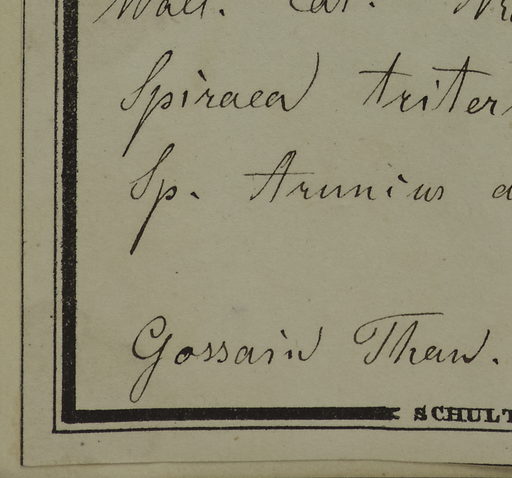 Wall. Cat.
Spiraea triter
Sp. Aruncus a
Gossain Than.
SCHULT